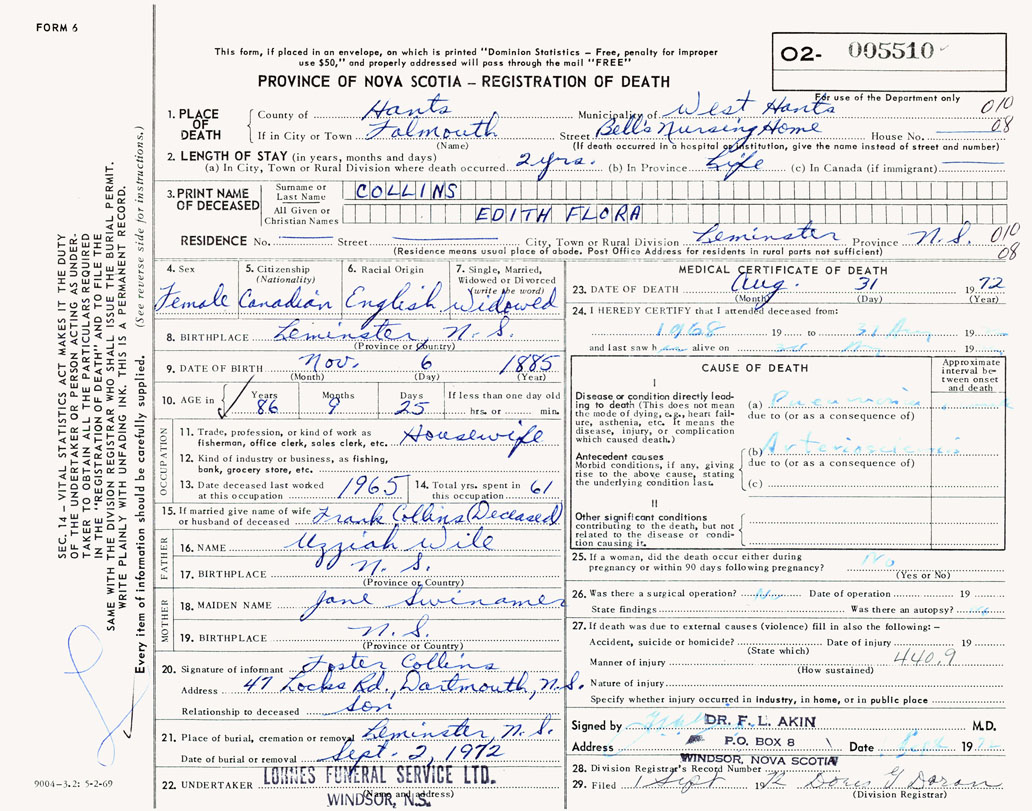 FORM 6
This form, if placed in an envelope, on which is printed "Dominion Statistics – Free, penalty for improper
use $50," and properly addressed will pass through the mail "FREE"
PROVINCE OF NOVA SCOTIA – REGISTRATION OF DEATH
O2- 005510
For use of the Department only
010
08
1. PLACE OF DEATH
County of Hants Municipality of West Hants
If in City or Town Falmouth Street Bells Nursing Home House No.
(Name) (If death occurred in a hospital or institution, give the name instead of street and number)
2. LENGTH OF STAY (in years, months and days)
(a) In City, Town or Rural Division where death occurred 2 yrs. (b) In Province Life (c) In Canada (if immigrant)
3. PRINT NAME OF DECEASED
Surname or Last Name COLLINS
All Given or Christian Names EDITH FLORA
RESIDENCE No. Street City, Town or Rural Division Leminster Province N.S. 010
(Residence means usual place of abode. Post Office Address for residents in rural parts not sufficient) 08
4. Sex Female
5. Citizenship (Nationality) Canadian
6. Racial Origin English
7. Single, Married, Widowed or Divorced (write the word) Widowed
8. BIRTHPLACE Leminster, N.S.
(Province or Country)
9. DATE OF BIRTH Nov. 6 1885
(Month) (Day) (Year)
10. AGE in Years Months Days If less than one day old
86 9 25 hrs. or min.
OCCUPATION
11. Trade, profession, or kind of work as
fisherman, office clerk, sales clerk, etc. Housewife
12. Kind of industry or business, as fishing,
bank, grocery store, etc.
13. Date deceased last worked at this occupation 1965
14. Total yrs. spent in this occupation 61
15. If married give name of wife
or husband of deceased Frank Collins (Deceased)
FATHER
16. NAME Uzziah Wile
17. BIRTHPLACE N.S.
(Province or Country)
MOTHER
18. MAIDEN NAME Jane Swinamer
19. BIRTHPLACE N.S.
(Province or Country)
20. Signature of informant Foster Collins
Address 47 Locks Rd., Dartmouth, N.S.
Relationship to deceased son
21. Place of burial, cremation or removal Leminster, N.S.
Date of burial or removal Sept. 2, 1972
22. UNDERTAKER LOHNES FUNERAL SERVICE LTD.
(Name and address)
WINDSOR, N.S.
MEDICAL CERTIFICATE OF DEATH
23. DATE OF DEATH Aug. 31 1972
(Month) (Day) (Year)
24. I HEREBY CERTIFY that I attended deceased from:
1968 19 to 31 Aug 19
and last saw h alive on 19
CAUSE OF DEATH
Approximate interval between onset and death
I
Disease or condition directly leading to death (This does not mean the mode of dying, e.g., heart failure, asthenia, etc. It means the disease, injury, or complication which caused death.)
(a) Pneumonia
due to (or as a consequence of)
Antecedent causes
Morbid conditions, if any, giving rise to the above cause, stating the underlying condition last.
(b)
due to (or as a consequence of)
(c)
II
Other significant conditions contributing to the death, but not related to the disease or condition causing it.
25. If a woman, did the death occur either during
pregnancy or within 90 days following pregnancy? No
(Yes or No)
26. Was there a surgical operation? No Date of operation 19
State findings Was there an autopsy?
27. If death was due to external causes (violence) fill in also the following: –
Accident, suicide or homicide? Date of injury 19
(State which) 440.9
Manner of injury
(How sustained)
Nature of injury
Specify whether injury occurred in industry, in home, or in public place
Signed by DR. F. L. AKIN M.D.
Address P.O. BOX 8 Date 19
WINDSOR, NOVA SCOTIA
28. Division Registrar's Record Number
29. Filed 1 Sept 19 Doris G Doran
(Division Registrar)
SEC. 14 – VITAL STATISTICS ACT MAKES IT THE DUTY
OF THE UNDERTAKER OR PERSON ACTING AS UNDER-
TAKER TO OBTAIN ALL THE PARTICULARS REQUIRED
IN THE "REGISTRATION OF DEATH" AND TO FILE THE
SAME WITH THE DIVISION REGISTRAR WHO SHALL ISSUE THE BURIAL PERMIT.
WRITE PLAINLY WITH UNFADING INK. THIS IS A PERMANENT RECORD.
Every item of information should be carefully supplied. (See reverse side for instructions.)
9004-3.2: 5-2-69